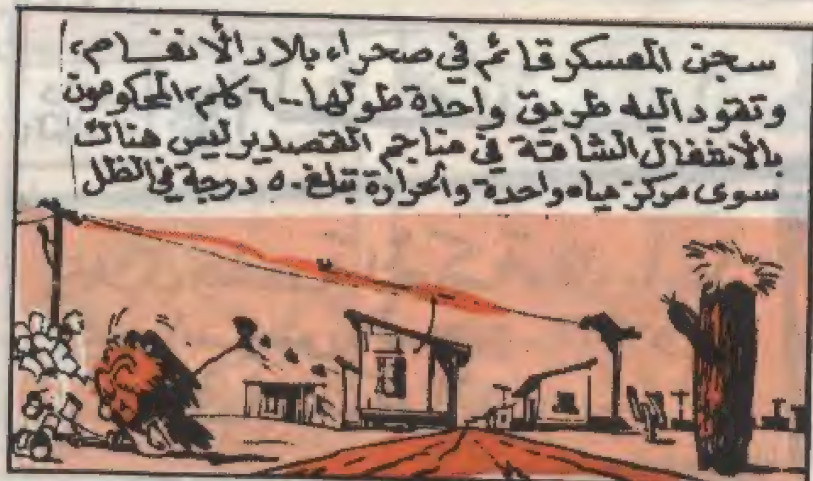 سجن المعسكر قائم في صحراء بلاد الأنغام،
وتقود اليه طريق واحدة طولها ٦٠٠ كلم، المحكومون
بالأشغال الشاقة في مناجم القصدير ليس هناك
سوى مركز مياه واحدة والحرارة تبلغ ٥٠ درجة في الظل